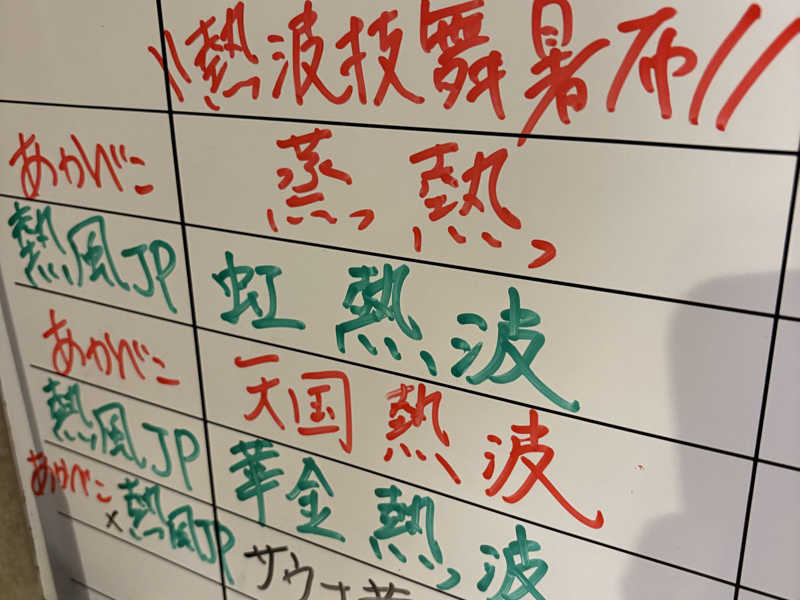 \\熱波技舞暑布//
あかべこ 蒸熱
熱風JP 虹熱波
あかべこ 天国熱波
熱風JP 華金熱波
あかべこ×熱風JP サウナ